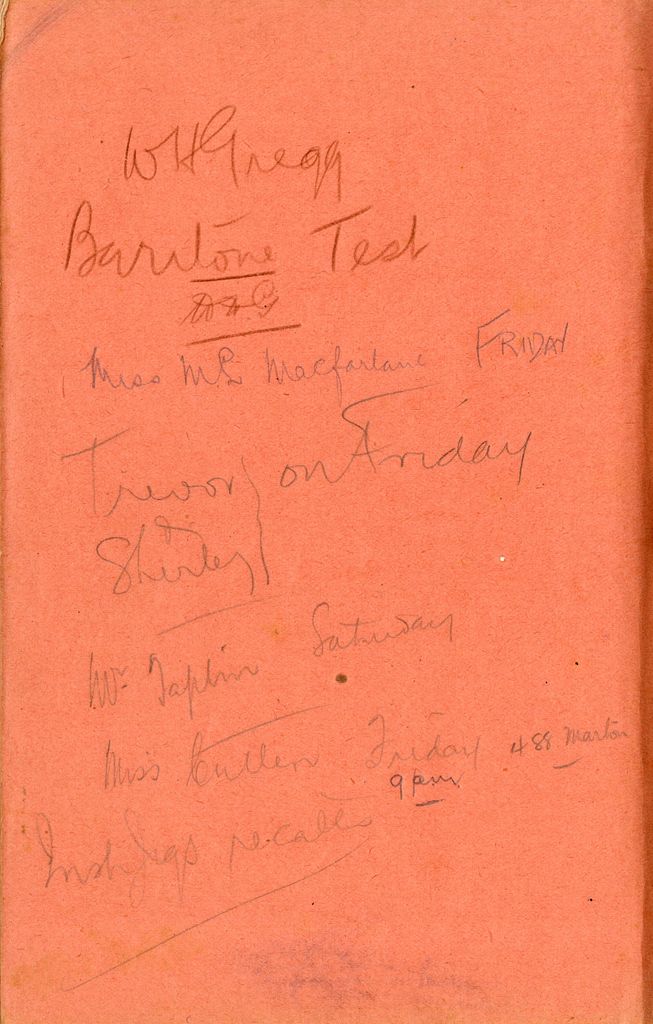 WHGregg
Baritone Test
Miss ML Macfarlane FRIDAY
Trevor } on Friday
&
Shirley
Mr. Taplin Saturday
Miss Cullen Friday 488 Marton
9 p.m.
Irish Jigs recalled